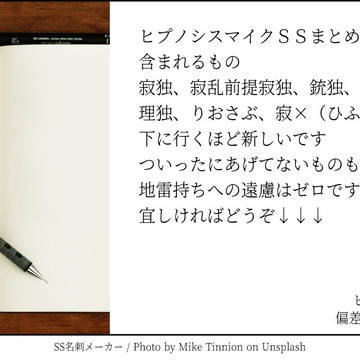 ヒプノシスマイクＳＳまとめ
含まれるもの
寂独、寂乱前提寂独、銃独、
理独、りおさぶ、寂×（ひふ
下に行くほど新しいです
ついったにあげてないものも
地雷持ちへの遠慮はゼロです
宜しければどうぞ↓↓↓
ヒ
偏差
SS名刺メーカー / Photo by Mike Tinnion on Unsplash